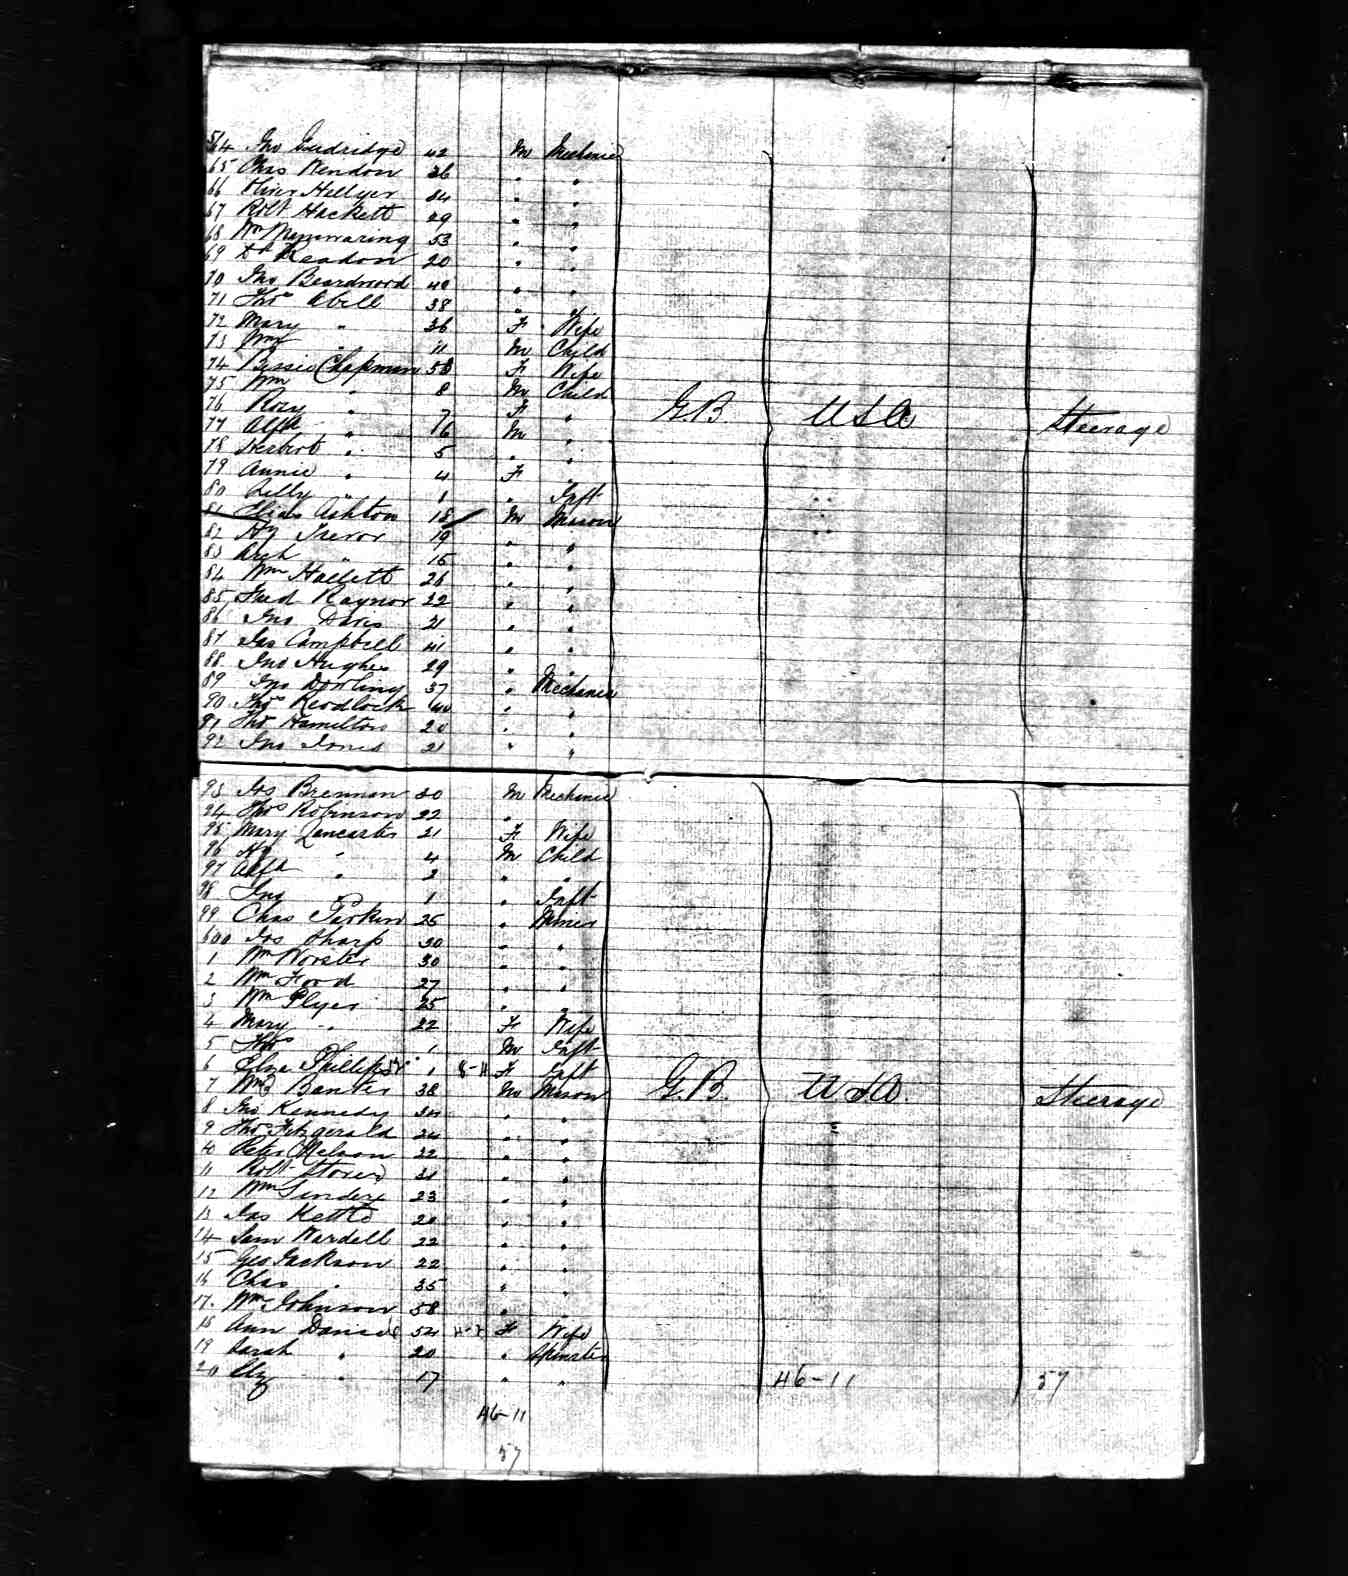 564 Jno Gudridge 42 M Mechanic
65 Chas Rendon 36 " "
66 Oliver Hellyer 34 " "
67 Robt Hackett 29 " "
68 Wm Mannwaring 53 " "
69 Dd Readon 20 " "
70 Jno Beardwood 40 " "
71 Thos Abell 38 " "
72 Mary " 36 F Wife
73 Wm " 11 M Child
74 Bessie Chapman 53 F Wife
75 Wm " 8 M Child
76 Rosy " 7 F " G.B. USA Steerage
77 Alfd " 6 M "
78 Herbert " 5 " "
79 Annie " 4 F "
80 Nelly " 1 " Inft
81 Elias Ashton 18 M Mason
82 Hy Trevor 19 " "
83 Arch " 15 " "
84 Wm Hallett 26 " "
85 Fred Raynor 22 " "
86 Jno Davis 21 " "
87 Jas Campbell 41 " "
88 Jno Hughes 29 " "
89 Jno Dowling 37 " Mechanic
90 Thos Readlock 40 " "
91 Thos Hamilton 20 " "
92 Jno Jones 21 " "
93 Jos Brennan 30 M Mechanic
94 Thos Robinson 22 "
95 Mary Lancaster 21 F Wife
96 Hy " 4 M Child
97 Alfd " 2 " "
98 Jno " 1 " Inft
99 Chas Parkin 25 " Miner
600 Jos Sharp 30 " "
1 Wm Worster 30 " "
2 Wm Ford 27 " "
3 Wm Plyer 25 " "
4 Mary " 22 F Wife
5 Thos " 1 M Inft
6 Elza Phillips 1 8-11 F Inft
7 Wm Banter 38 M Mason G.B. USA Steerage
8 Jno Kennedy 34 " "
9 Thos Fitzgerald 24 " "
10 Peter Nelson 22 " "
11 Robt Stores 21 " "
12 Wm 23 " "
13 Jas Kettle 20 " "
14 Sam Wardell 22 " "
15 Geo Jackson 22 " "
16 Chas " 35 " "
17 Wm Johnson 58 " "
18 Ann 54 F Wife
19 Sarah " 20 " Spinster
20 Eliz " 17 " " 46-11 57
46-11
57